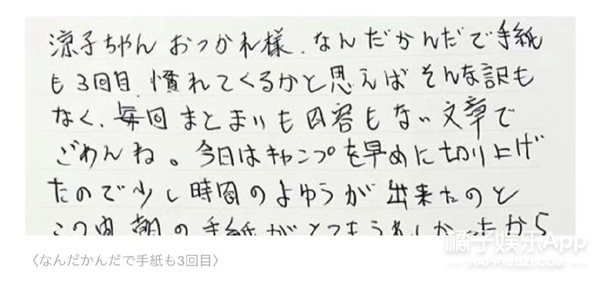 涼子ちゃん おつかれ様、なんだかんだで手紙
も3回目、慣れてくるかと思えば そんな訳も
なく、毎回 まとまりも 内容もない文章で
ごめんね。今日はキャンプを早めに切り上げ
たので少し時間のよゆうが出来たのと
この内 朝の手紙がとってもうれしかったから
橘子娱乐App
HAPPYJUZI.COM
〈なんだかんだで手紙も3回目〉